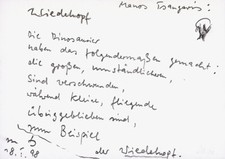 Manos Tsangaris:
Wiedehopf
Die Dinosaurier
haben das folgendermaßen gemacht:
die großen, umständlichen,
sind verschwunden,
während kleine, fliegende
übriggeblieben sind,
zum Beispiel
der Wiedehopf.
28.1.98